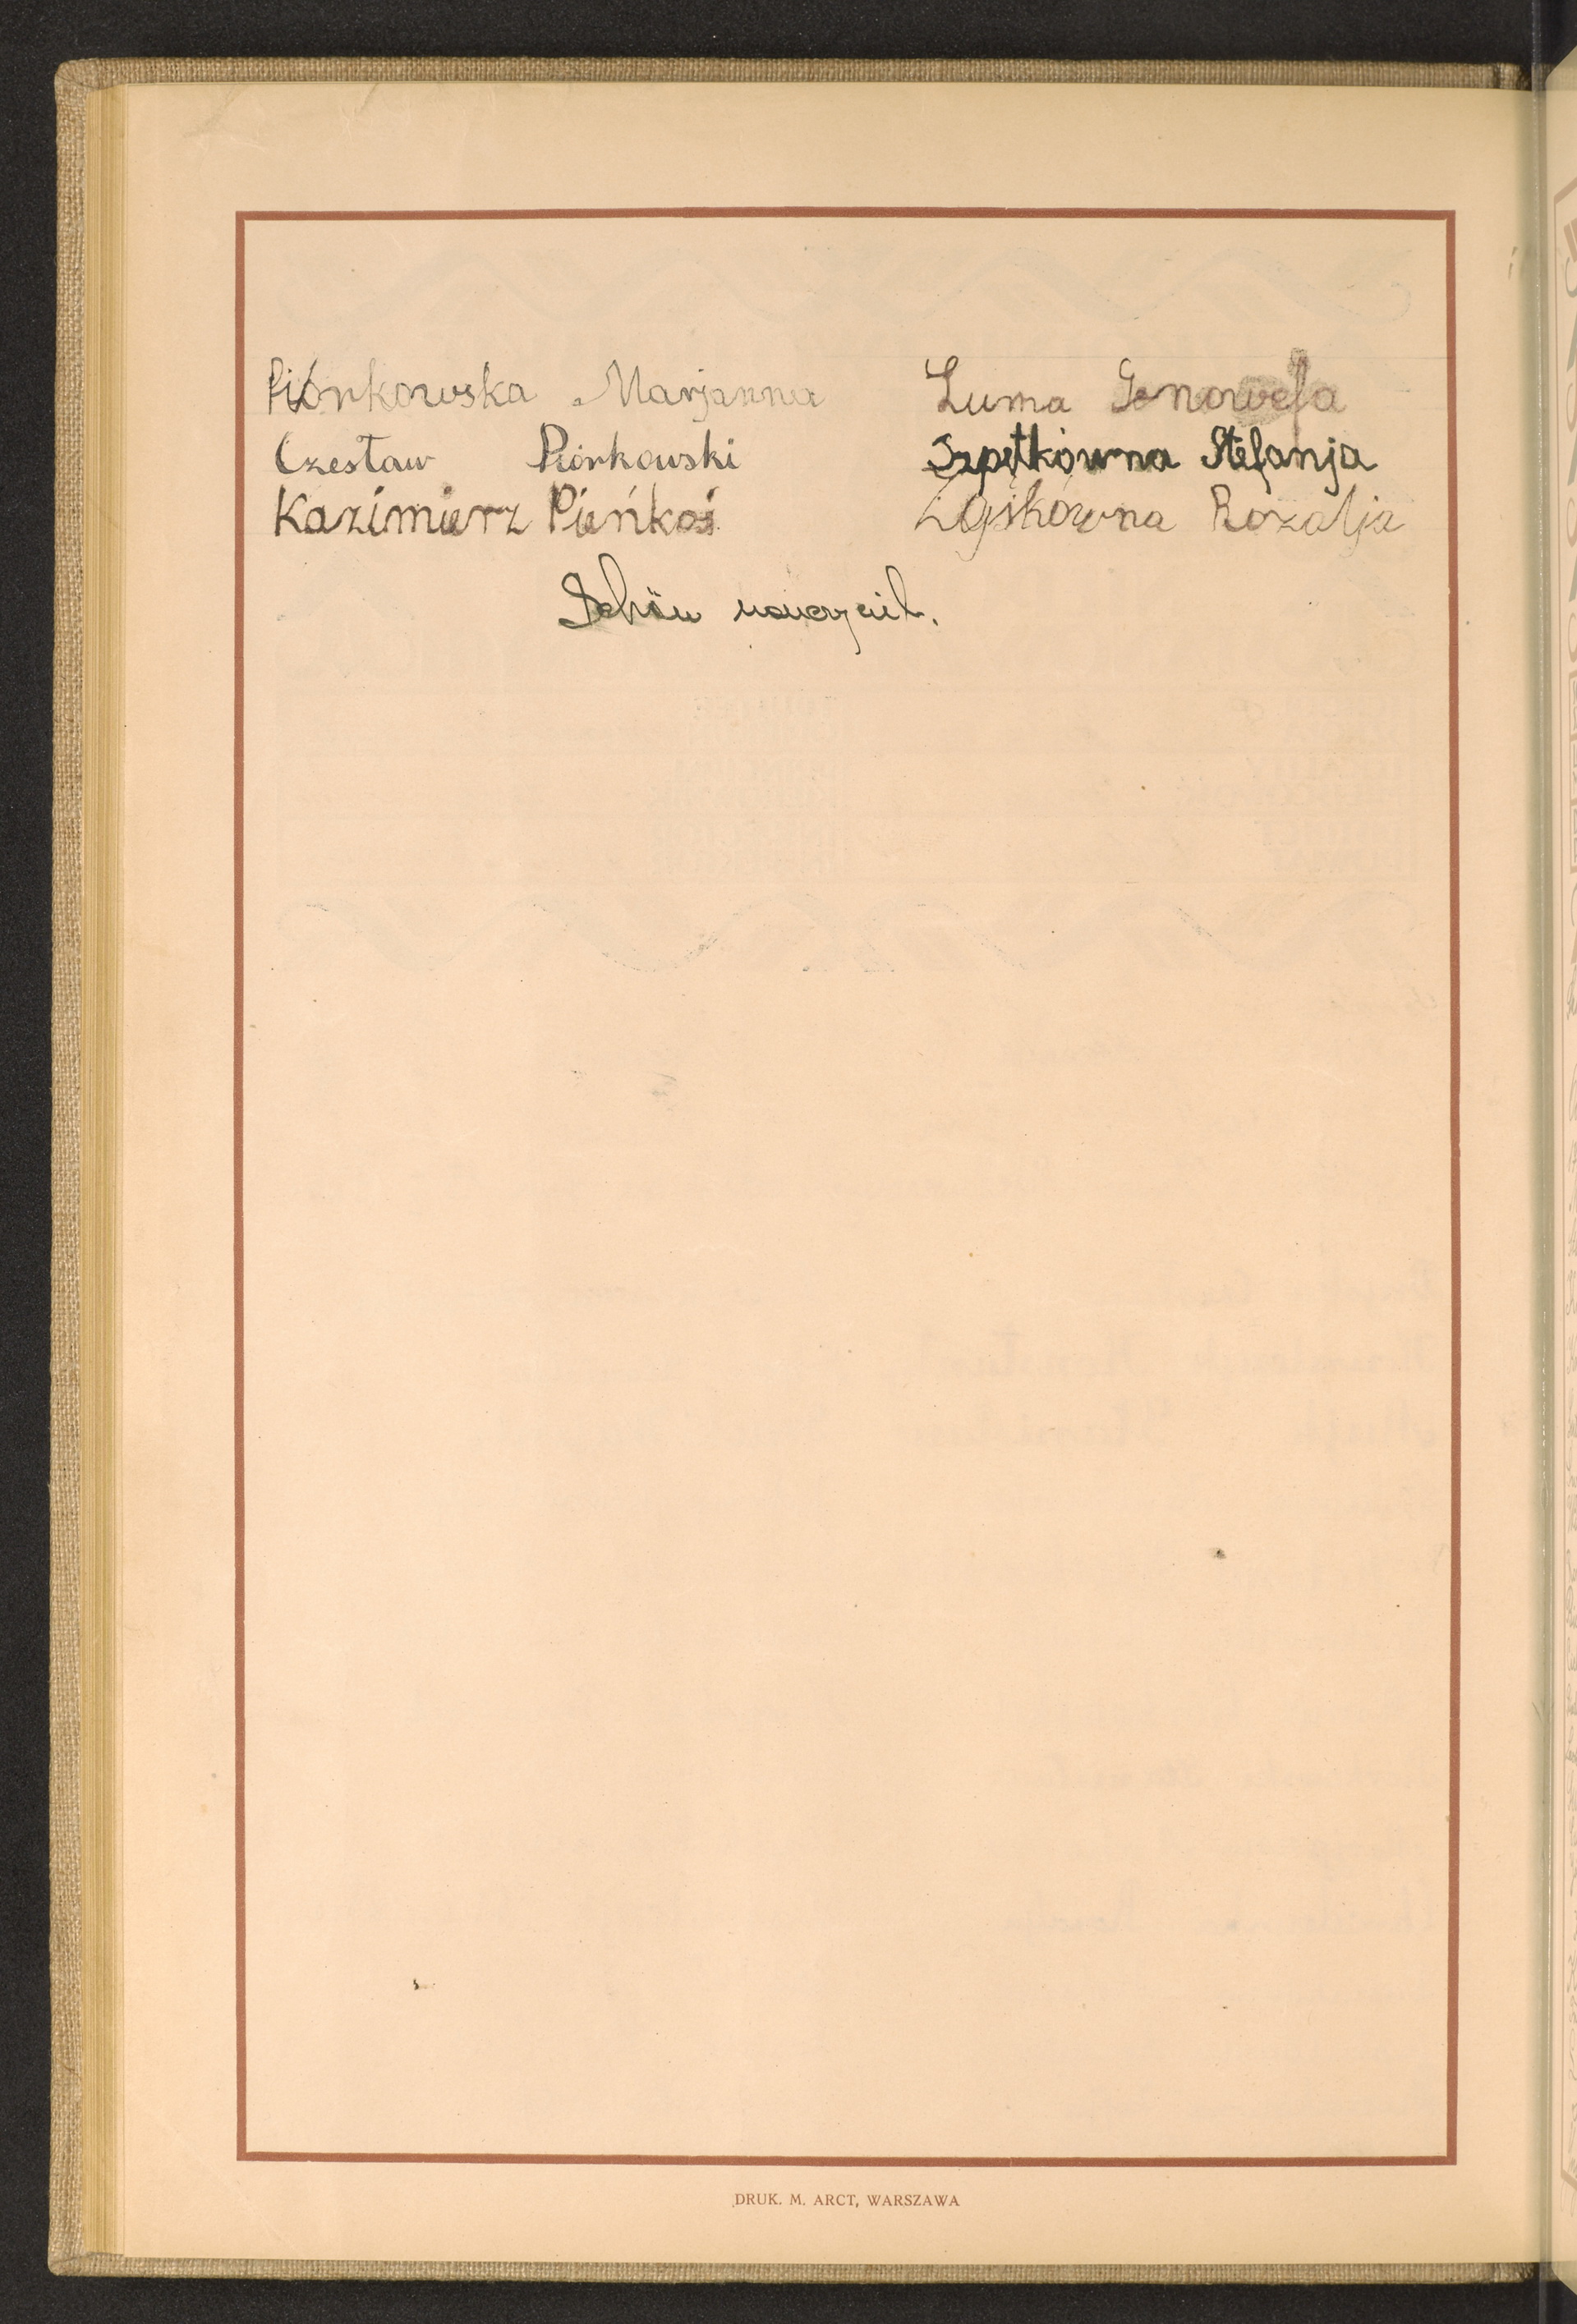 Piórkowska Marjanna
Czesław Piórkowski
Kazimierz Pieńkoś
Luma Genowefa
Szpetkówna Stefanja
Schön nauczyciel.
Rozalja
DRUK. M. ARCT, WARSZAWA